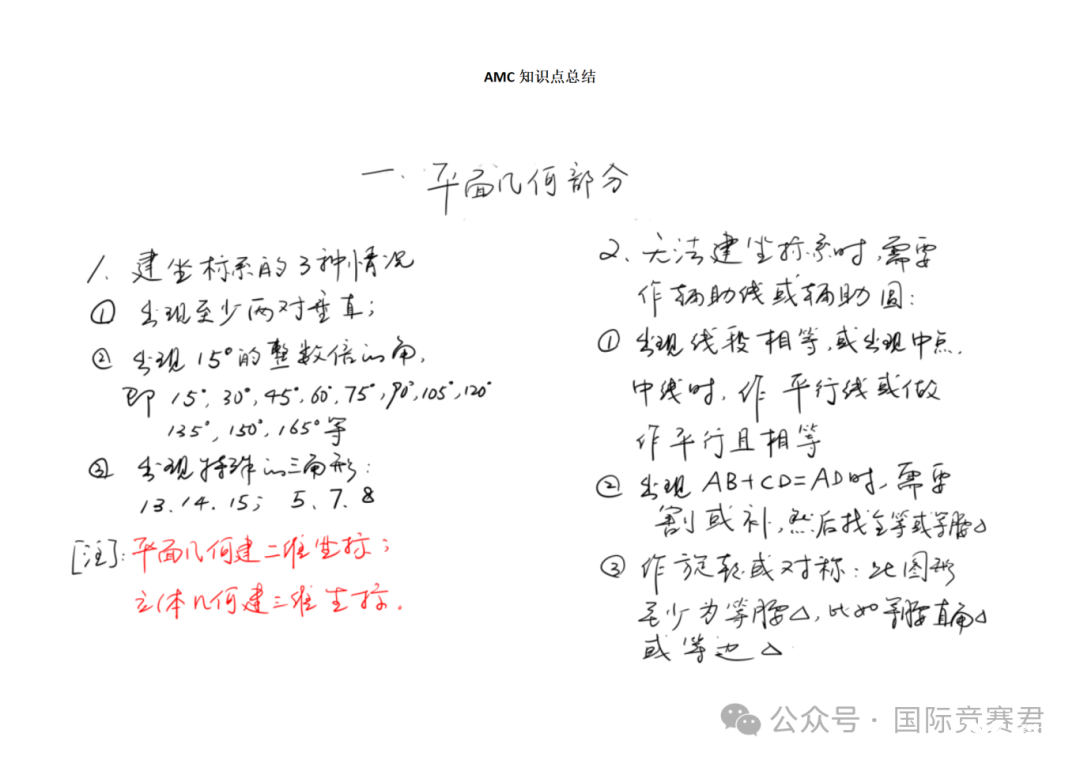 AMC 知识点总结
一、平面几何部分
1、建坐标系的3种情况
① 出现至少两对垂直;
② 出现15°的整数倍的角,
即 15°, 30°, 45°, 60°, 75°, 90°, 105°, 120°
135°, 150°, 165°等
③ 出现特殊的三角形:
13、14、15; 5、7、8
[注]: 平面几何建二维坐标;
立体几何建三维坐标.
2、无法建坐标系时,需要
作辅助线或辅助圆:
① 出现线段相等,或出现中点,
中线时,作 平行线或做
作平行且相等
② 出现 AB+CD=AD时,需要
割或补,然后找全等或等腰△
③ 作旋转或对称:此图形
至少为等腰△,比如等腰直角△
或等边△
公众号·国际竞赛君